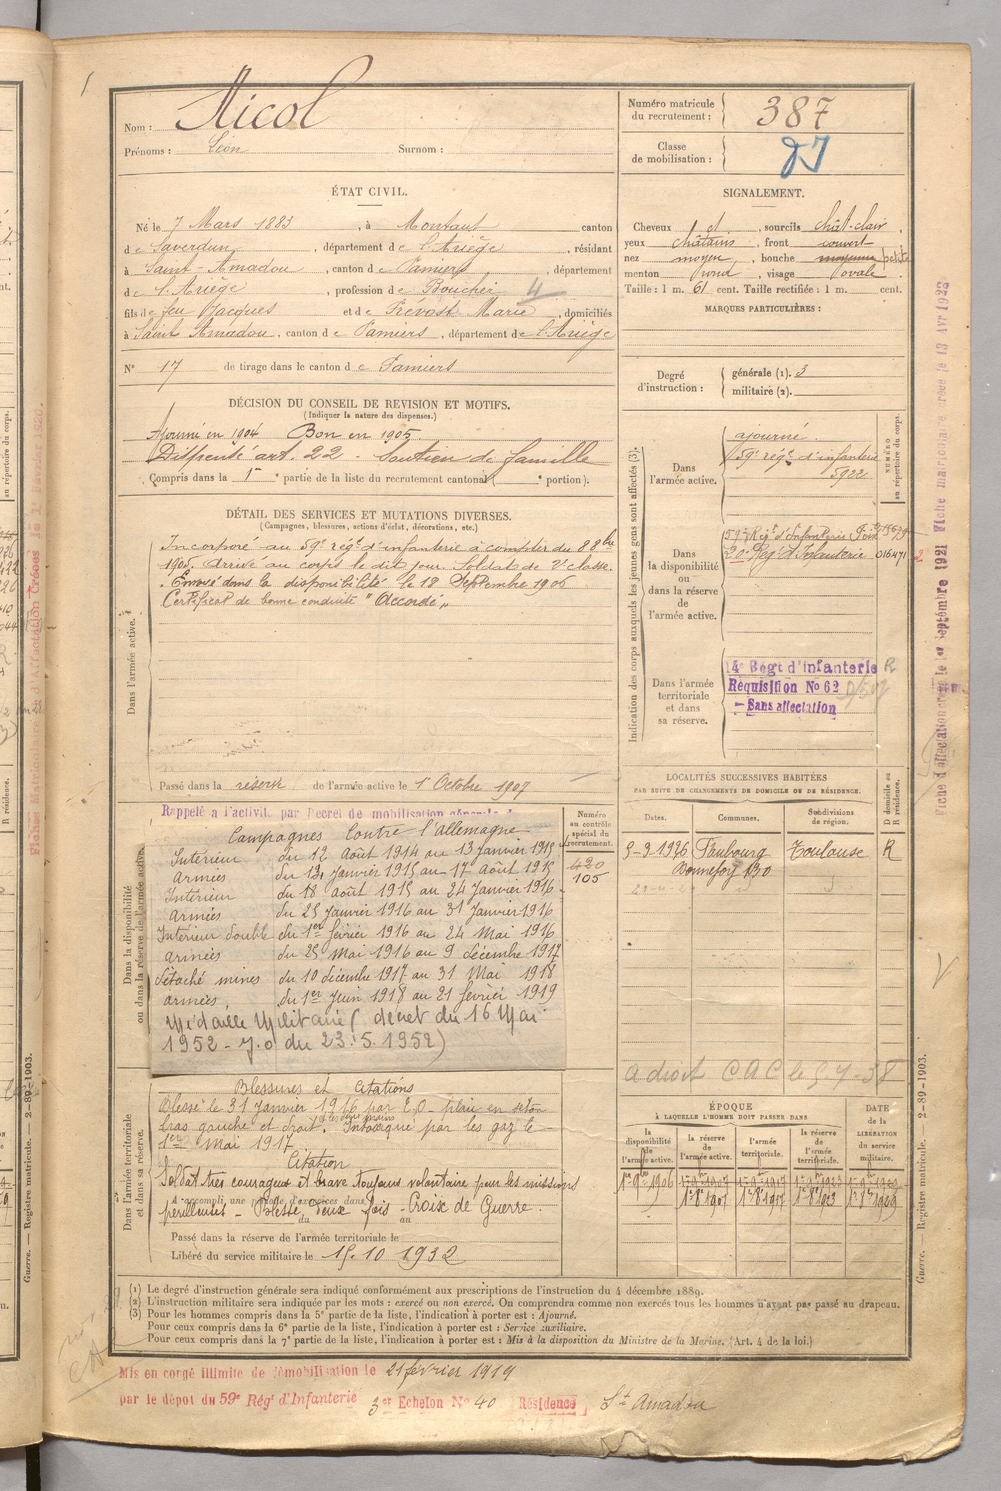 Nom : Nicol
Prénoms : Léon Surnom :
Numéro matricule du recrutement : 387
Classe de mobilisation :
ÉTAT CIVIL.
Né le 7 Mars 1883, à Montaut canton
de Saverdun, département de l'Ariège, résidant
à Saint-Amadou, canton de Pamiers, département
de l'Ariège, profession de Boucher 4
fils de feu Jacques et de Prévost Marie, domiciliés
à Saint Amadou, canton de Pamiers, département de l'Ariège
N° 17 de tirage dans le canton de Pamiers
SIGNALEMENT.
Cheveux et, sourcils chât-clair
yeux châtains, front couvert
nez moyen, bouche moyenne petite
menton rond, visage ovale.
Taille : 1 m. 61 cent. Taille rectifiée : 1 m. cent.
MARQUES PARTICULIÈRES :
Degré d'instruction : générale (1). 3
militaire (2).
DÉCISION DU CONSEIL DE REVISION ET MOTIFS.
(Indiquer la nature des dispenses.)
Ajourné en 1904 Bon en 1905
Dispensé art. 22 - Soutien de famille
Compris dans la 1re partie de la liste du recrutement cantonal ( e portion).
DÉTAIL DES SERVICES ET MUTATIONS DIVERSES.
(Campagnes, blessures, actions d'éclat, décorations, etc.)
Dans l'armée active.
Incorporé au 59e régt d'infanterie à compter du 8 8bre
1905. Arrivé au corps le dit jour. Soldat de 2e classe.
Envoyé dans la disponibilité le 18 Septembre 1906
Certificat de bonne conduite "Accordé"
Passé dans la réserve de l'armée active le 1er Octobre 1907
Indication des corps auxquels les jeunes gens sont affectés (3).
NUMÉRO au répertoire du corps.
Dans l'armée active.
ajourné.
59e régt d'infanterie
5922
Dans la disponibilité ou dans la réserve de l'armée active.
59e Régt d'Infanterie Foix
20e Rég d'Infanterie 016471
Dans l'armée territoriale et dans sa réserve.
14e Régt d'infanterie R
Requisition No 62
Sans affectation
Dans la disponibilité ou dans la réserve de l'armée active.
Rappelé a l'activité par Decret de mobilisation générale
Campagnes Contre l'allemagne
Intérieur du 12 Août 1914 au 13 janvier 1915
Armées du 14 janvier 1915 au 17 Août 1915
Intérieur du 18 Août 1915 au 24 janvier 1916
Armées du 25 janvier 1916 au 31 janvier 1916
Intérieur double du 1er février 1916 au 24 Mai 1916
armées du 25 Mai 1916 au 9 décembre 1917
détaché mines du 10 décembre 1917 au 31 Mai 1918
armées, du 1er juin 1918 au 21 février 1919
Médaille Militaire (décret du 16 Mai
1952 - J.O du 23.5.1952)
Numéro au contrôle spécial du recrutement.
420
105
LOCALITÉS SUCCESSIVES HABITÉES
PAR SUITE DE CHANGEMENTS DE DOMICILE OU DE RÉSIDENCE.
Dates. Communes. Subdivisions de région. D domicile ou R résidence.
5-9-1926 Faubourg Bonnefoy 130 Toulouse R
a droit CAC le 5-7-38
Dans l'armée territoriale et dans sa réserve.
Blessures et Citations
Blessé le 31 Janvier 1916 par E.O - plaie en séton
bras gauche et droit et les deux mains. Intoxiqué par les gaz le
1er Mai 1917
Citation
Soldat très courageux et brave toujours volontaire pour les missions
A accompli une période d'exercices dans
périlleuses - Blessé deux fois - Croix de Guerre.
du au
Passé dans la réserve de l'armée territoriale le
Libéré du service militaire le 15.10 1932
ÉPOQUE
À LAQUELLE L'HOMME DOIT PASSER DANS
la disponibilité de l'armée active. la réserve de l'armée active. l'armée territoriale. la réserve de l'armée territoriale.
DATE de la LIBÉRATION du service militaire.
(1) Le degré d'instruction générale sera indiqué conformément aux prescriptions de l'instruction du 4 décembre 1889.
(2) L'instruction militaire sera indiquée par les mots : exercé ou non exercé. On comprendra comme non exercés tous les hommes n'ayant pas passé au drapeau.
(3) Pour les hommes compris dans la 5e partie de la liste, l'indication à porter est : Ajourné.
Pour ceux compris dans la 6e partie de la liste, l'indication à porter est : Service auxiliaire.
Pour ceux compris dans la 7e partie de la liste, l'indication à porter est : Mis à la disposition du Ministre de la Marine. (Art. 4 de la loi.)
Mis en congé illimité de démobilisation le 21 février 1919
par le dépot du 59e Régt d'Infanterie 3er Echelon No 40 Résidence St Amadou
Guerre. — Registre matricule. — 2-89-1903.
Fiche d'affectation créée le 1er Septembre 1921 Fiche matriculaire créée le 13 Avr 1928